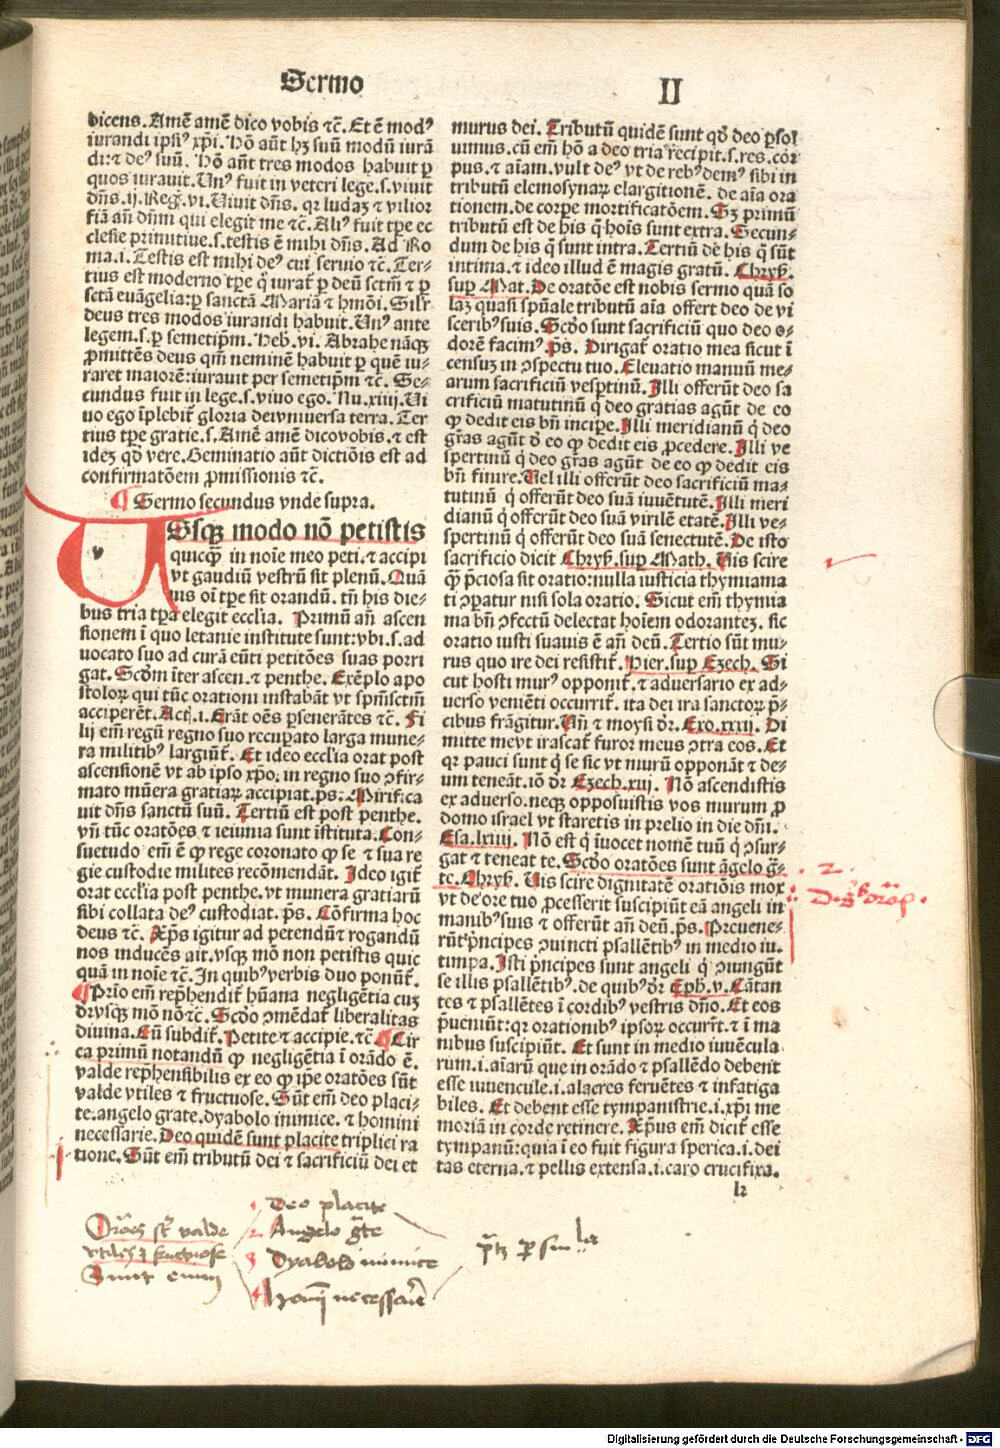 Sermo
II
dicens. Amē amē dico vobis ⁊c̄. Et ē modꝰ
iurandi ipsiꝰ xp̄i. Hō aūt hꝫ suū modū iurā
di:⁊ deꝰ suū. Hō aūt tres modos habuit ꝑ
quos iurauit. Unꝰ fuit in veteri lege.s.viuit
dn̄s.ij.Reg.vi. Uiuit dn̄s. qꝛ ludaꝫ ⁊ vilior
fiā an̄ dn̄m qui elegit me ⁊c̄. Aliꝰ fuit tꝑe ec
clesie primitiue.s.testis ē mihi dn̄s. Ad Ro
ma.i. Testis est mihi deꝰ cui seruio ⁊c̄. Ter-
tius est moderno tꝑe q̄ iurat̄ ꝑ deū sctm̄ ⁊ ꝑ
sctā euāgelia:ꝑ sanctā Mariā ⁊ hmōi. Silr̄
deus tres modos iurandi habuit. Unꝰ ante
legem.s.ꝑ semetip̄m. Heb̄.vi. Abrahe nāqꝫ
ꝓmittēs deus qm̄ neminē habuit ꝑ quē iu-
raret maiorē:iurauit per semetip̄m ⁊c̄. Se-
cundus fuit in lege.s.viuo ego. Nu.xiiij. Ui
uo ego īplebit̄ gloria dei vniuersa terra. Ter
tius tꝑe gratie.s. Amē amē dico vobis.⁊ est
ideꝫ qd̄ vere. Geminatio aūt dictiōis est ad
confirmatōem ꝓmissionis ⁊c̄.
¶ Sermo secundus vnde supra.
USqꝫ modo nō petistis
quicqꝫ̄ in noīe meo peti.⁊ accipi
vt gaudiū vestrū sit plenū. Quā
uis oī tꝑe sit orandū. tn̄ his die-
bus tria tꝑa elegit eccl̄ia. Primū an̄ ascen
sionem ī quo letanie institute sunt:vbi.s.ad
uocato suo ad curā eūti petitōes suas porri
gat. Scdōm īter ascen.⁊ penthe. Exēplo apo
stoloꝝ qui tūc orationi instabāt vt sp̄msctm̄
acciperēt. Act̄.i. Erāt oēs ꝑseuerātes ⁊c̄. Fi
lij em̄ regū regno suo recuꝑato larga mune-
ra militibꝰ largiūt̄. Et ideo eccl̄ia orat post
ascensionē vt ab ipso xp̄o. in regno suo ꝯfir-
mato mūera gratiaꝝ accipiat.ps̄. Mirifica
uit dn̄s sanctū suū. Tertiū est post penthe.
vn̄ tūc oratōes ⁊ ieiunia sunt īstituta. Con-
suetudo em̄ ē ꝙ rege coronato ꝙ se ⁊ sua re
gie custodie milites recōmendāt. Ideo igit̄
orat eccl̄ia post penthe. vt munera gratiarū
sibi collata deꝰ custodiat. ps̄. Cōfirma hoc
deus ⁊c̄. Xp̄s igitur ad petendū ⁊ rogandū
nos inducēs ait.vsqꝫ mō non petistis quic
quā in noīe ⁊c̄. In quibꝰ verbis duo ponūt̄.
¶ Prīo em̄ rep̄hendit hūana negligētia cuꝫ
dr̄ vsqꝫ mō nō ⁊c̄. Scdō ꝯmēdat̄ liberalitas
diuina. Cū subdit̄. Petite ⁊ accipie.⁊c̄. ¶ Cir
ca primū notandū ꝙ negligētia ī orādo ē.
valde rep̄hensibilis ex eo ꝙ ip̄e oratōes sūt
valde vtiles ⁊ fructuose. Sūt em̄ deo placi-
te.angelo grate.dyabolo inimice.⁊ homini
necessarie. Deo quidē sunt placite triplici ra
tione. Sūt em̄ tributū dei ⁊ sacrificiū dei et
murus dei. Tributū quidē sunt qd̄ deo ꝑsol
uimus. cū em̄ hō a deo tria recipit.s.res.cor
pus.⁊ aīam. vult deꝰ vt de rebꝰ demꝰ sibi in
tributū elemosynaꝝ elargitionē. de aīa ora
tionem. de corꝑe mortificatōem. Sꝫ primū
tributū est de his q̄ hoīs sunt extra. Secun-
dum de his q̄ sunt intra. Tertiū de his q̄ sūt
intima.⁊ ideo illud ē magis gratū. Chrys̄.
suꝑ Mat. De oratōe est nobis sermo quā so
laꝫ quasi spūale tributū aīa offert deo de vi
sceribꝰ suis. Scdō sunt sacrificiū quo deo o-
dorē facimꝰ. ps̄. Dirigat̄ oratio mea sicut ī
censuꝫ in ꝯspectu tuo. Eleuatio manuū me-
arum sacrificiū vesꝑtinū. Illi offerūt deo sa
crificiū matutinū q̄ deo gratias agūt de eo
ꝙ dedit eis bn̄ incipe. Illi meridianū q̄ deo
gr̄as agūt d̄ eo ꝙ dedit eis ꝓcedere. Illi ve
spertinū q̄ deo gr̄as agūt de eo ꝙ dedit eis
bn̄ finire. Uel illi offerūt deo sacrificiū ma-
tutinū q̄ offerūt deo suā iuuētutē. Illi meri
dianū q̄ offerūt deo suā virilē etatē. Illi ve-
spertinū q̄ offerūt deo suā senectutē. De isto
sacrificio dicit Chrys̄.suꝑ Math. Uis scire
qꝫ̄ p̄ciosa sit oratio:nulla iusticia thymiama
ti ꝯparatur nisi sola oratio. Sicut em̄ thymia
ma bn̄ ꝯfectū delectat hoīem odorantez. sic
oratio iusti suauis ē an̄ deū. Tertio sūt mu-
rus quo ire dei resistit̄. Hier.suꝑ Ezech. Si
cut hosti murꝰ opponit̄.⁊ aduersario ex ad-
uerso veniēti occurrit̄. ita dei ira sanctoꝝ p̄-
cibus frāgitur. Un̄ ⁊ moysi dr̄. Exo.xxxij. Di
mitte me vt irascat̄ furor meus ꝯtra eos. Et
qꝛ pauci sunt q̄ se sic vt murū opponāt ⁊ de-
um teneāt.iō dr̄ Ezech.xiij. Nō ascendistis
ex aduerso.neqꝫ opposuistis vos murum ꝓ
domo israel vt staretis in prelio in die dn̄i.
Esa.lxiiij. Nō est q̄ īuocet nomē tuū q̄ ꝯsur-
gat ⁊ teneat te. Scdō oratōes sunt āgelo ḡ-
te. Chrys̄. Uis scire dignitatē oratiōis mox
vt de ore tuo ꝓcesserit suscipiūt eā angeli in
manibꝰ suis ⁊ offerūt an̄ deū.ps̄. Preuene-
rūt p̄ncipes ꝯiuncti psallētibꝰ in medio iu.
timpa. Isti p̄ncipes sunt angeli q̄ ꝯiungūt
se illis psallētibꝰ.de quibꝰ dr̄ Eph̄.v. Cātan
tes ⁊ psallētes ī cordibꝰ vestris dn̄o. Et eos
p̄ueniūt:qꝛ orationibꝰ ipsoꝝ occurrt̄.⁊ ī ma
nibus suscipiūt. Et sunt in medio iuuēcula
rum.i.aīarū que in orādo ⁊ psallēdo debent
esse iuuencule.i.alacres feruētes ⁊ infatiga
biles. Et debent esse tympanistrie.i.xp̄i me
moriā in corde retinere. Xp̄us em̄ dicit̄ esse
tympanū:quia ī eo fuit figura sperica.i.dei
tas eterna.⁊ pellis extensa.i.caro crucifixa.
l2
2.
Orōes st̄ valde
vtiles ⁊ fructuose
Sunt enim
1 Deo placite
2 Angelo gͣte
3 Dyabolo inimice
4 homī necessarie
Digitalisierung gefördert durch die Deutsche Forschungsgemeinschaft - DFG